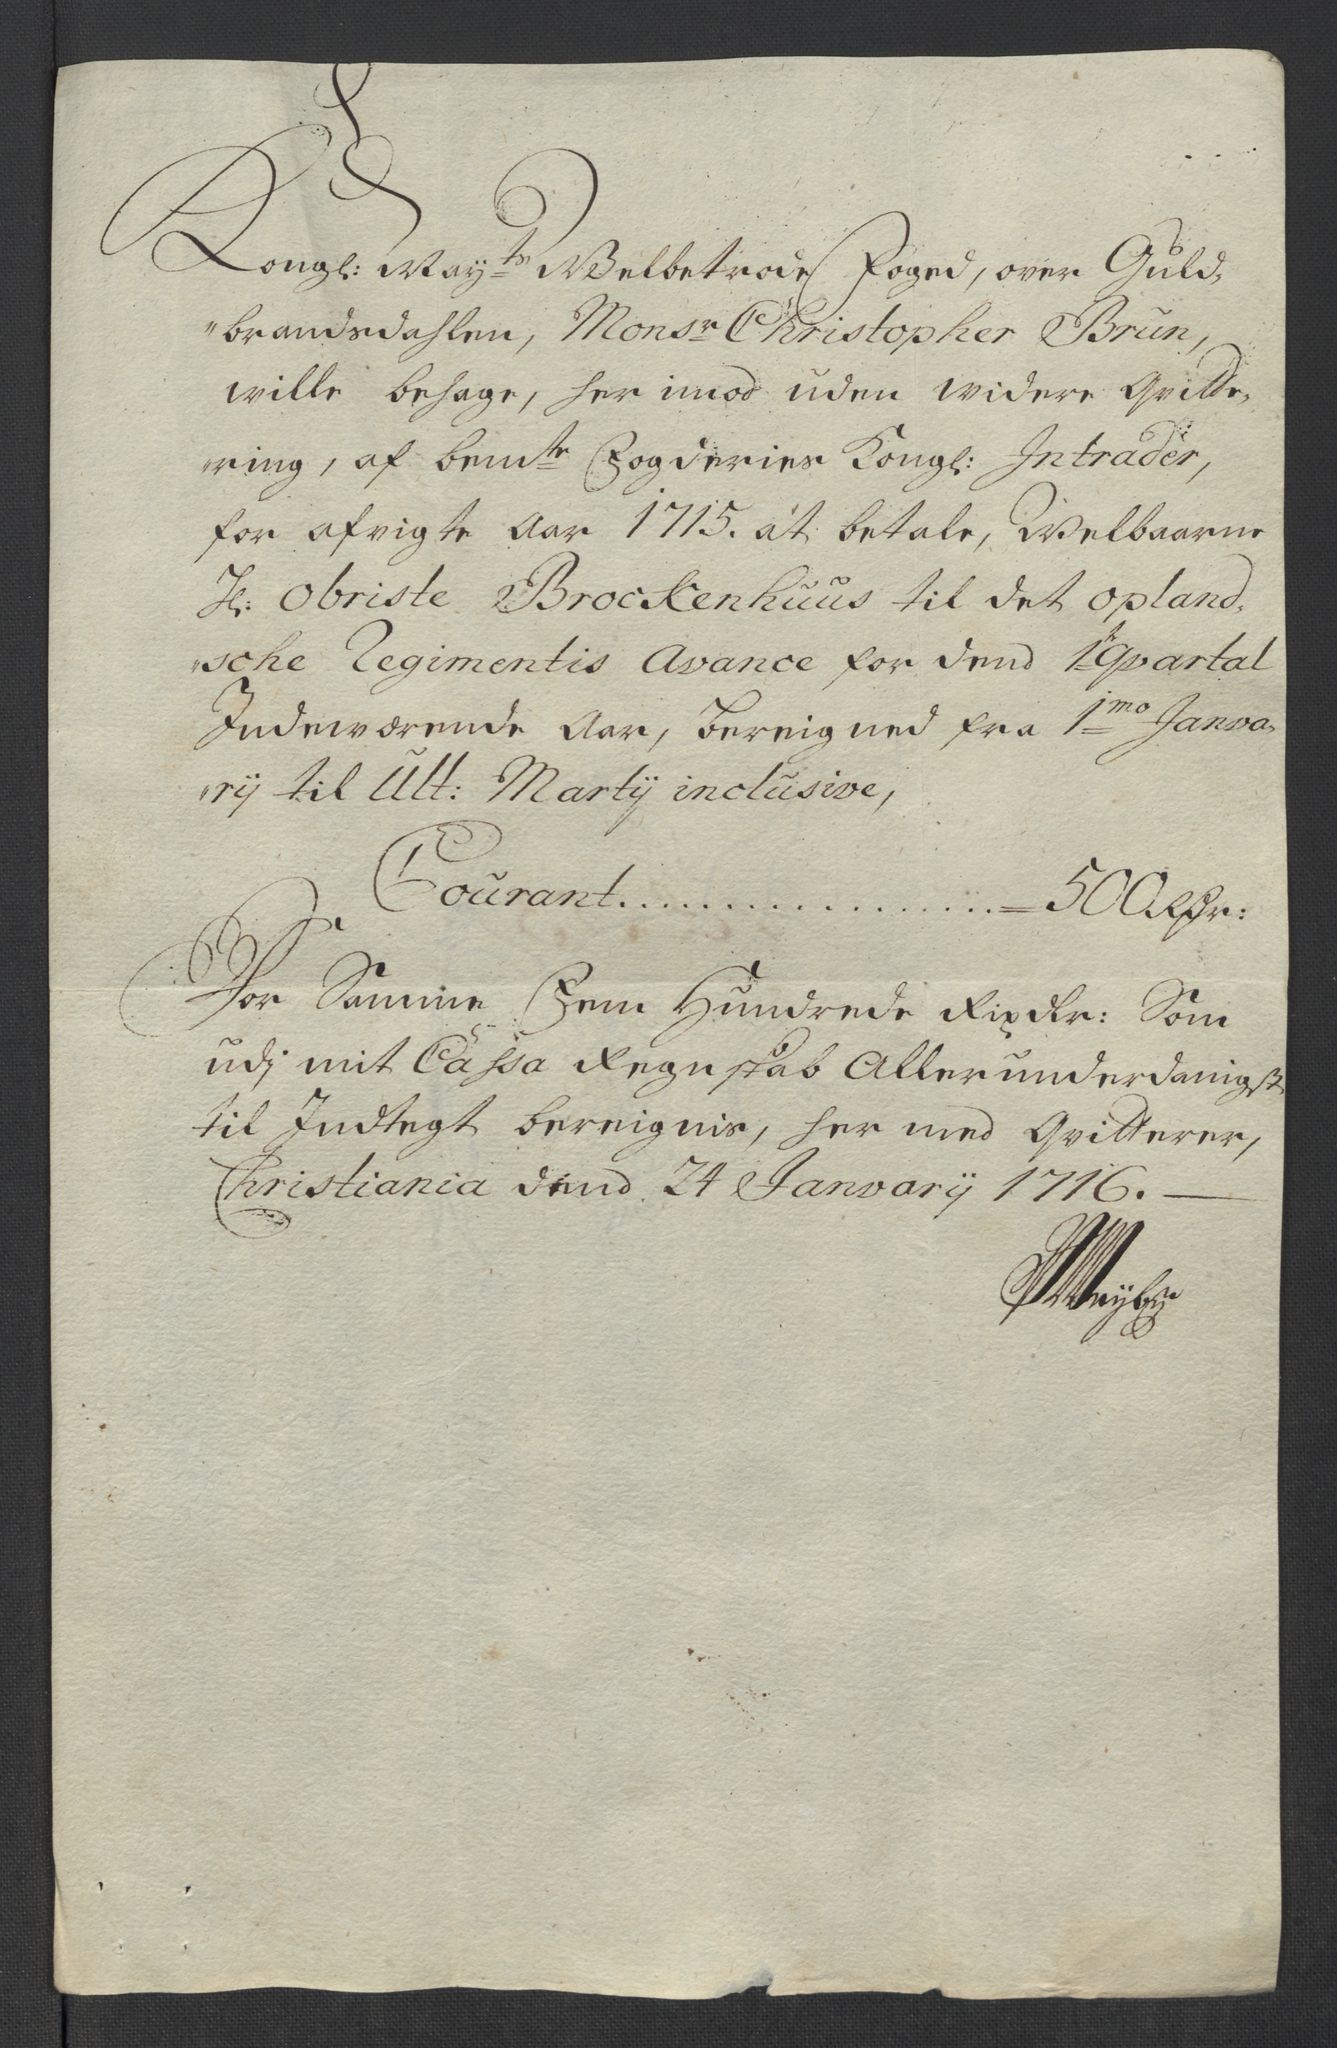 Kongl: May:ts Welbetrode Foged, over Guld,
brandsdahlen, Monsr Christopher Brun,
wille behage, her imod uden widere Qvitte,
ring, af bemte Fogderies Kongl: Intrader,
for afvigte Aar 1715. at betale, Welbaarne
H: Obriste Brockenhuus til det opland,
sche Regimentis Avance for dend 1te Qvartal
Indeværende Aar, bereigned fra 1mo Janva,
rij til Ult: Martij inclusive,
Courant................ = 500 Rdr:
For Samme Fem Hundrede Rixdlr: Som
udj mit Cassa Regnskab Allerunderdanigst
til Indtegt bereignis, her med Qvitterer,
Christiania dend 24 Janvarij 1716. —